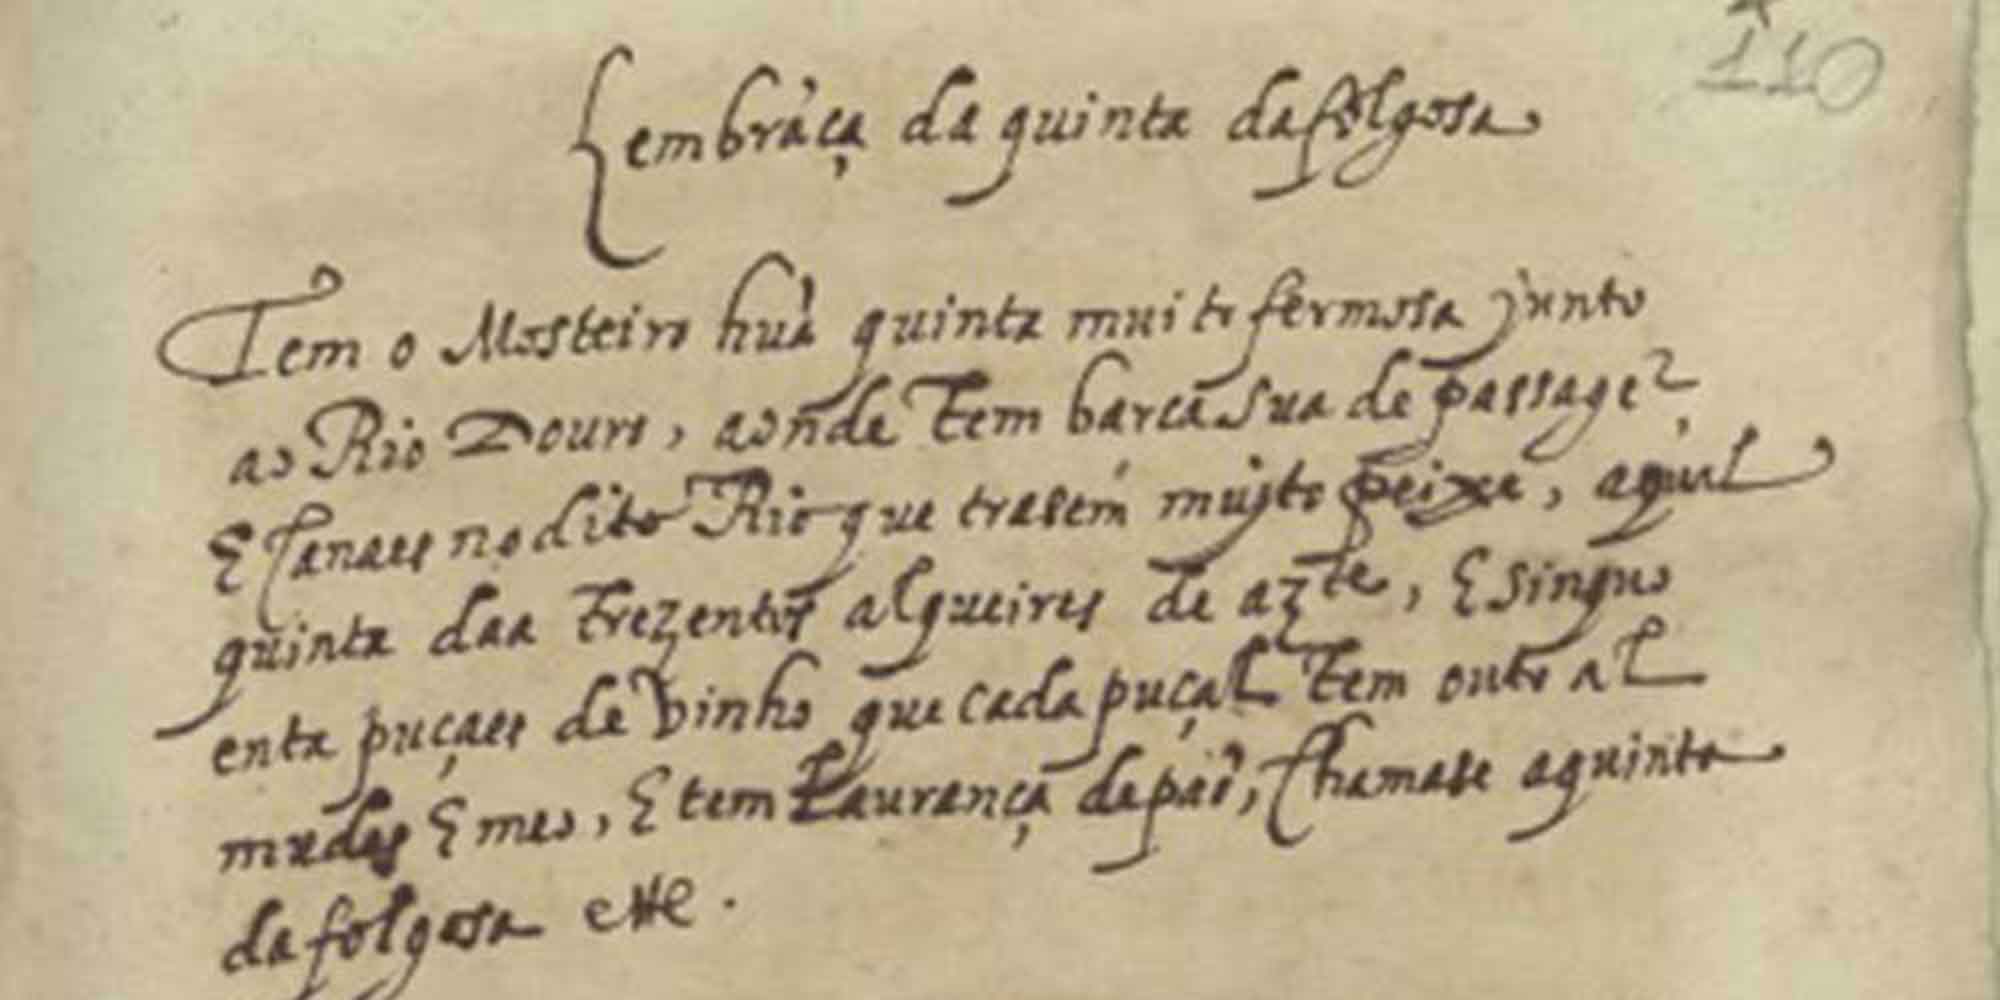 110
Lembrãça da quinta da folgosa
Tem o Mosteiro hũa quinta muito fermosa junto
ao Rio Douro, aonde tem barca sua de passagẽ,
E Canaes no dito Rio que trasem mujto peixe, aqual
quinta daa trezentos alqueires de azte, E sinquo
enta puçaes de vinho que cada puçal tem outo al
mudes E meo, E tem Laurança de paõ, Chamase aquinta
da folgosa ette.